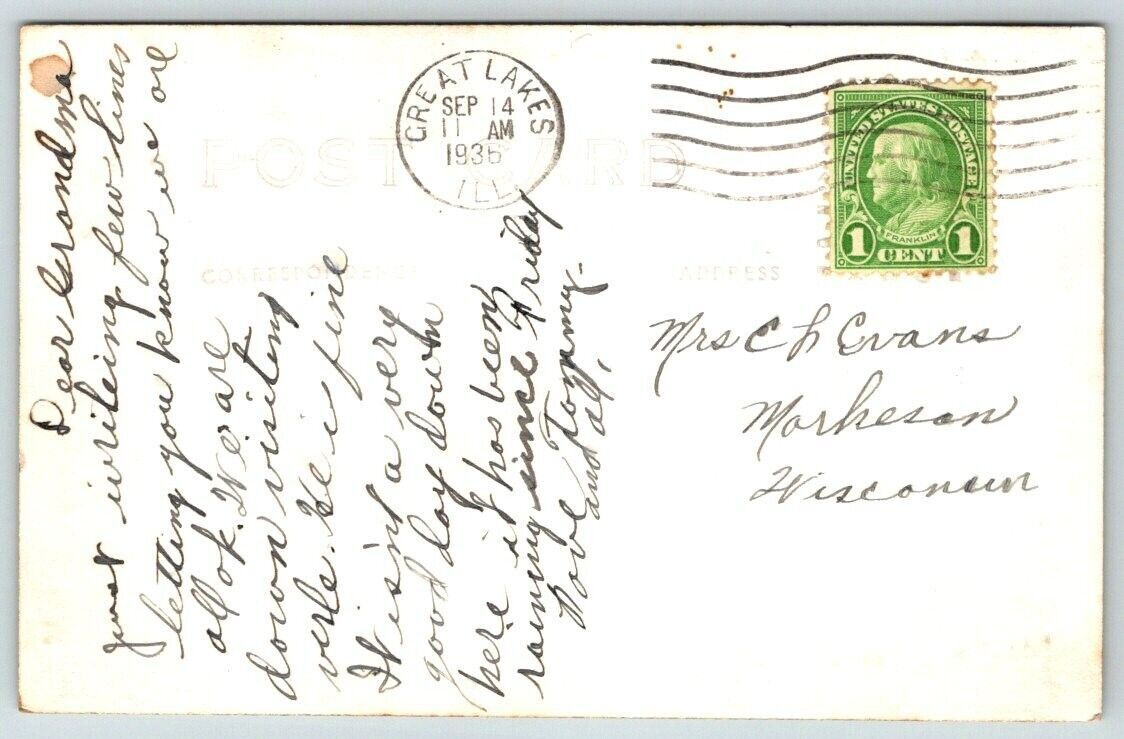 POST CARD
CORRESPONDENCE
ADDRESS
GREAT LAKES
SEP 14
11 AM
1936
ILL.
UNITED STATES POSTAGE
FRANKLIN
1 CENT 1
Dear Grandma
just writeing few lines
letting you know we are
all ok. We are
down visiting
verle. He is fine
It isn't a very
good day down
here it has been
rainny since Friday
Love Tommy.
and all,
Mrs C L Evans
Markesan
Wisconsin